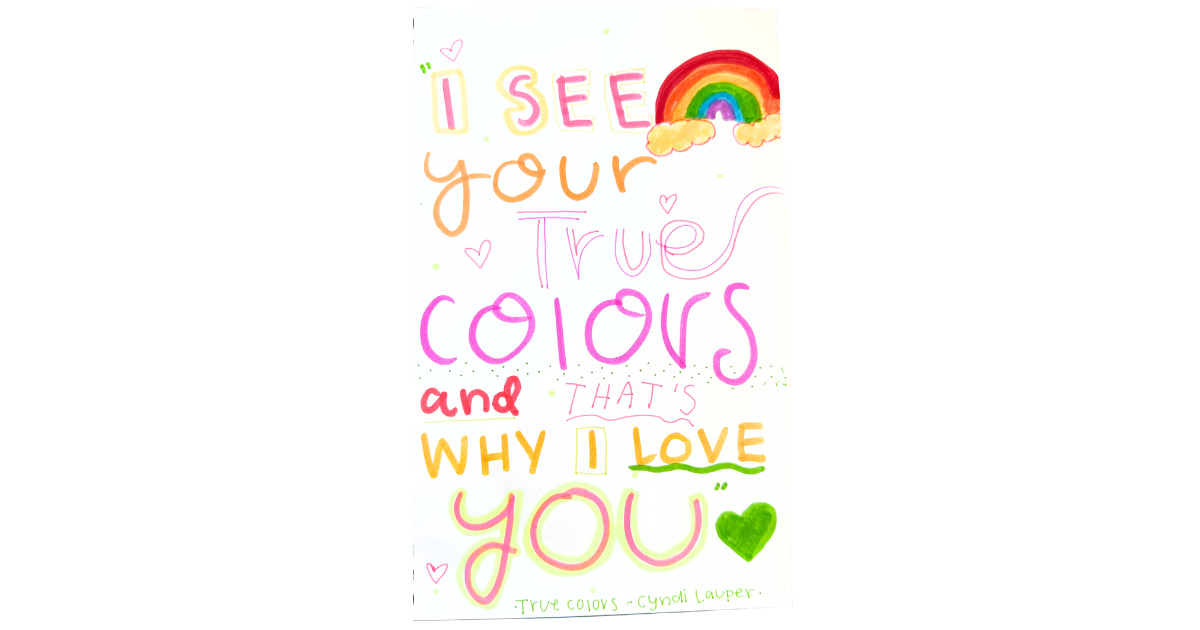 "I SEE
your
True
colors
and THAT'S
WHY I LOVE
YOU"
·True colors - Cyndi Lauper·